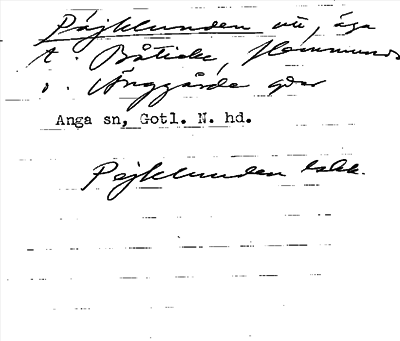 Päjklunden vu, äga
t. Båticke, Hommunds
o. Änggårde gdar
Anga sn, Gotl. N. hd.
Pejklunden